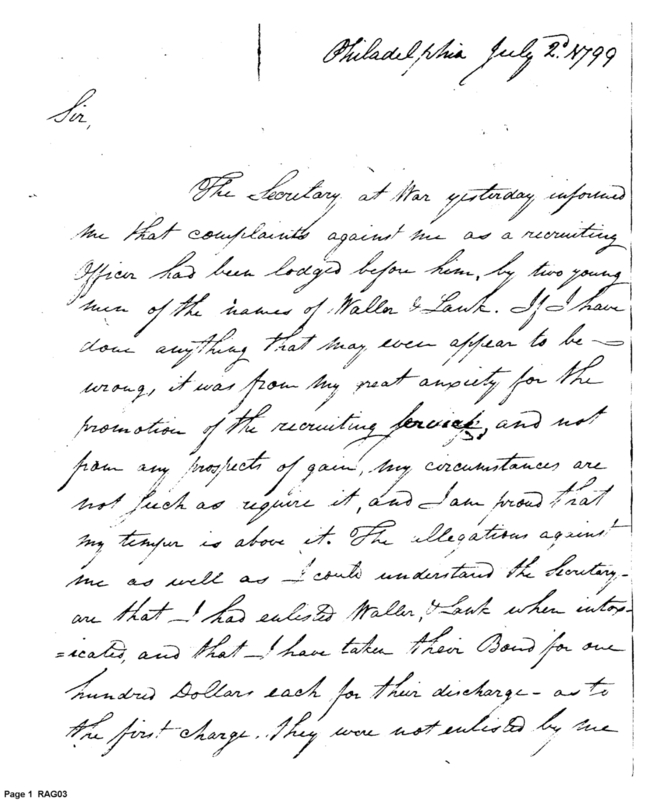 Philadelphia July 2d. 1799
Sir,
The Secretary at War yesterday informed
me that complaints against me as a recruiting
Officer had been lodged before him, by two young
men of the names of Waller & Lank. If I have
done anything that may even appear to be —
wrong, it was from my great anxiety for the
promotion of the recruiting Service, and not
from any prospects of gain, my circumstances are
not such as require it, and I am proud that
my temper is above it. The allegations against
me as well as I could understand the Secretary -
are that I had enlisted Waller, & Lank when intox-
=icated, and that I have taken their Bond for one
hundred Dollars each for their discharge - as to
the first charge. They were not enlisted by me
Page 1 RAG03